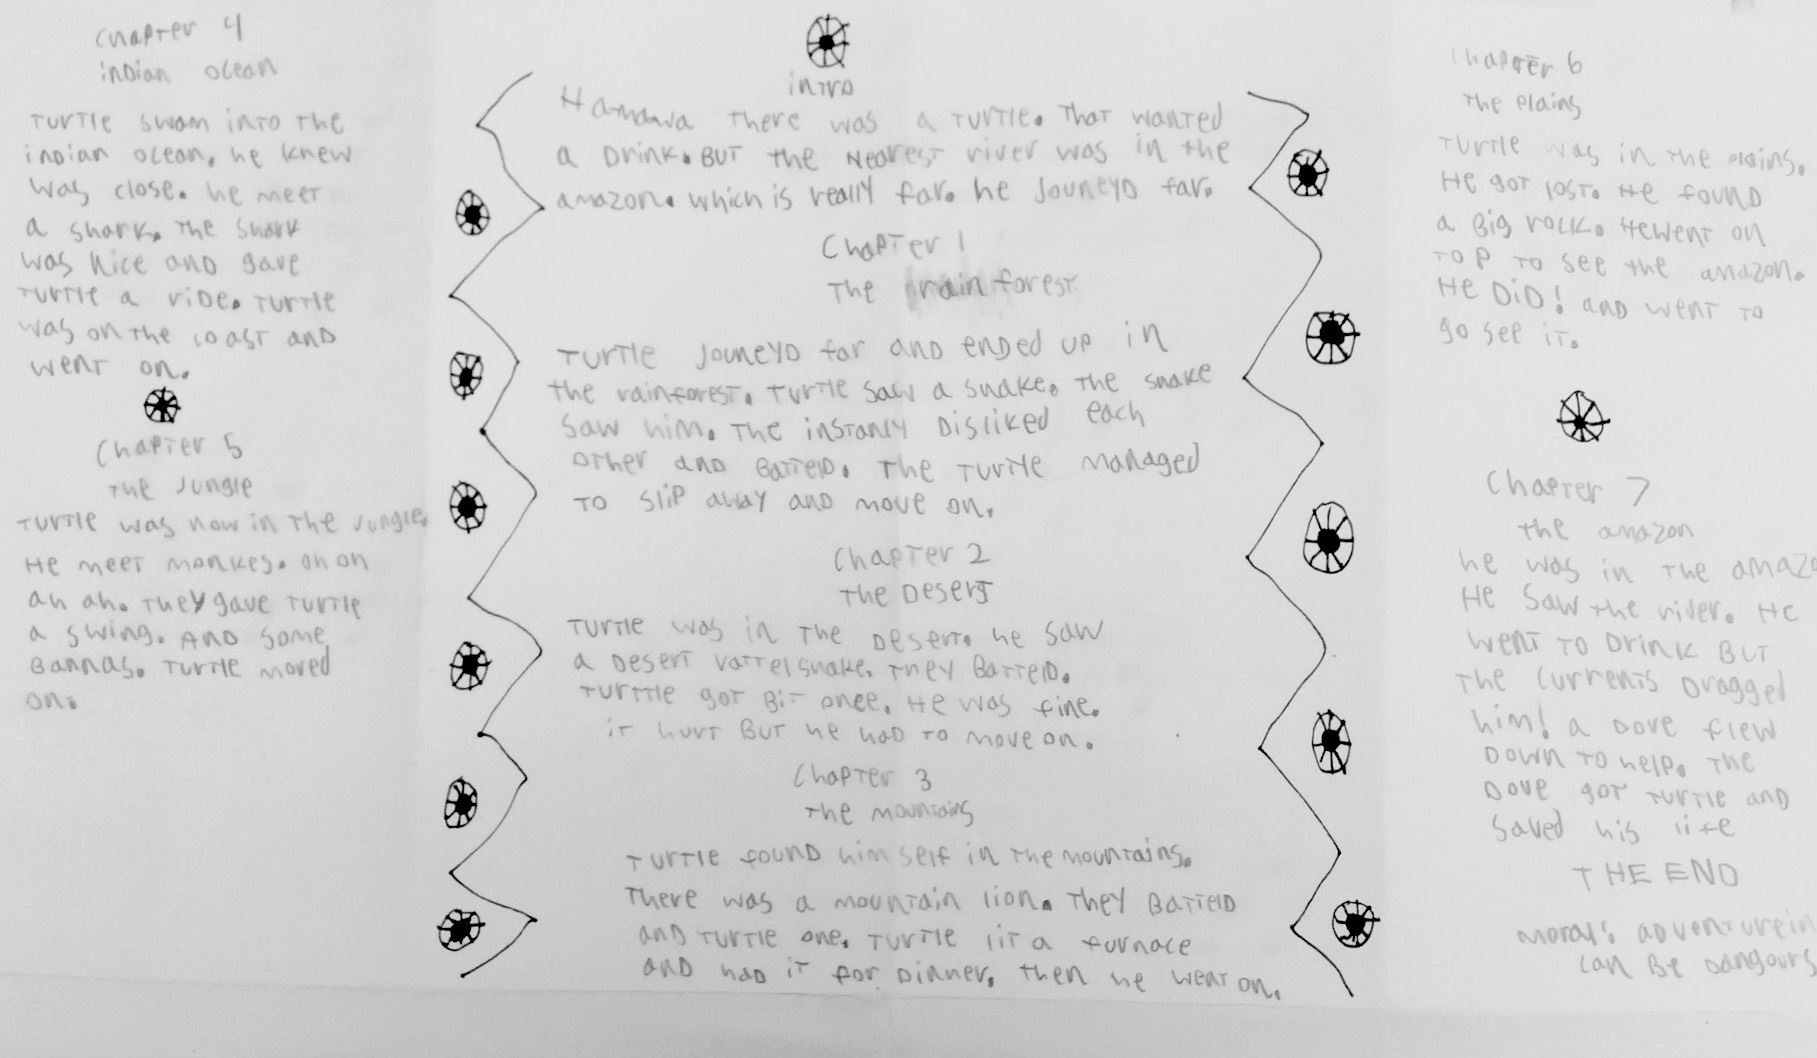 intro
Hamanva there was a turtle. That wanted
a Drink. BUT the Nearest river was in the
amazon. which is really far. he Jouneyd far.
Chapter 1
The rain forest
Turtle Jouneyd far and ended up in
the rainforest. Turtle saw a snake. The snake
saw him. The instanly Disliked each
other and Batteld. The Turtle managed
to slip away and move on.
Chapter 2
The Desert
Turtle was in the Desert. he saw
a Desert rattelsnake. They Batteld.
Turttle got Bit once. He was fine.
it hurt But he had to move on.
Chapter 3
The mountains
Turtle found him self in the mountains.
There was a mountain lion. They Batteld
and Turtle one. Turtle lit a furnace
and had it for Dinner. Then he went on.
Chapter 4
indian ocean
Turtle swam into the
indian ocean. he knew
was close. he meet
a shark. The shark
was Nice and gave
Turtle a ride. Turtle
was on the coast and
went on.
Chapter 5
The Jungle
Turtle was now in the Jungle.
He meet monkes. oh oh
ah ah. They gave Turtle
a swing. And some
Bannas. Turtle moved
on.
Chapter 6
The Plains
Turtle was in the plains.
He got lost. He found
a Big rock. He went on
top to see the amazon.
He Did! and went to
go see it.
Chapter 7
The amazon
he was in the amazo
He saw the river. He
went to Drink But
The currents Dragged
him! a Dove flew
Down to help. The
Dove got Turtle and
saved his life
THE END
moral: adventurein
can Be Dangours